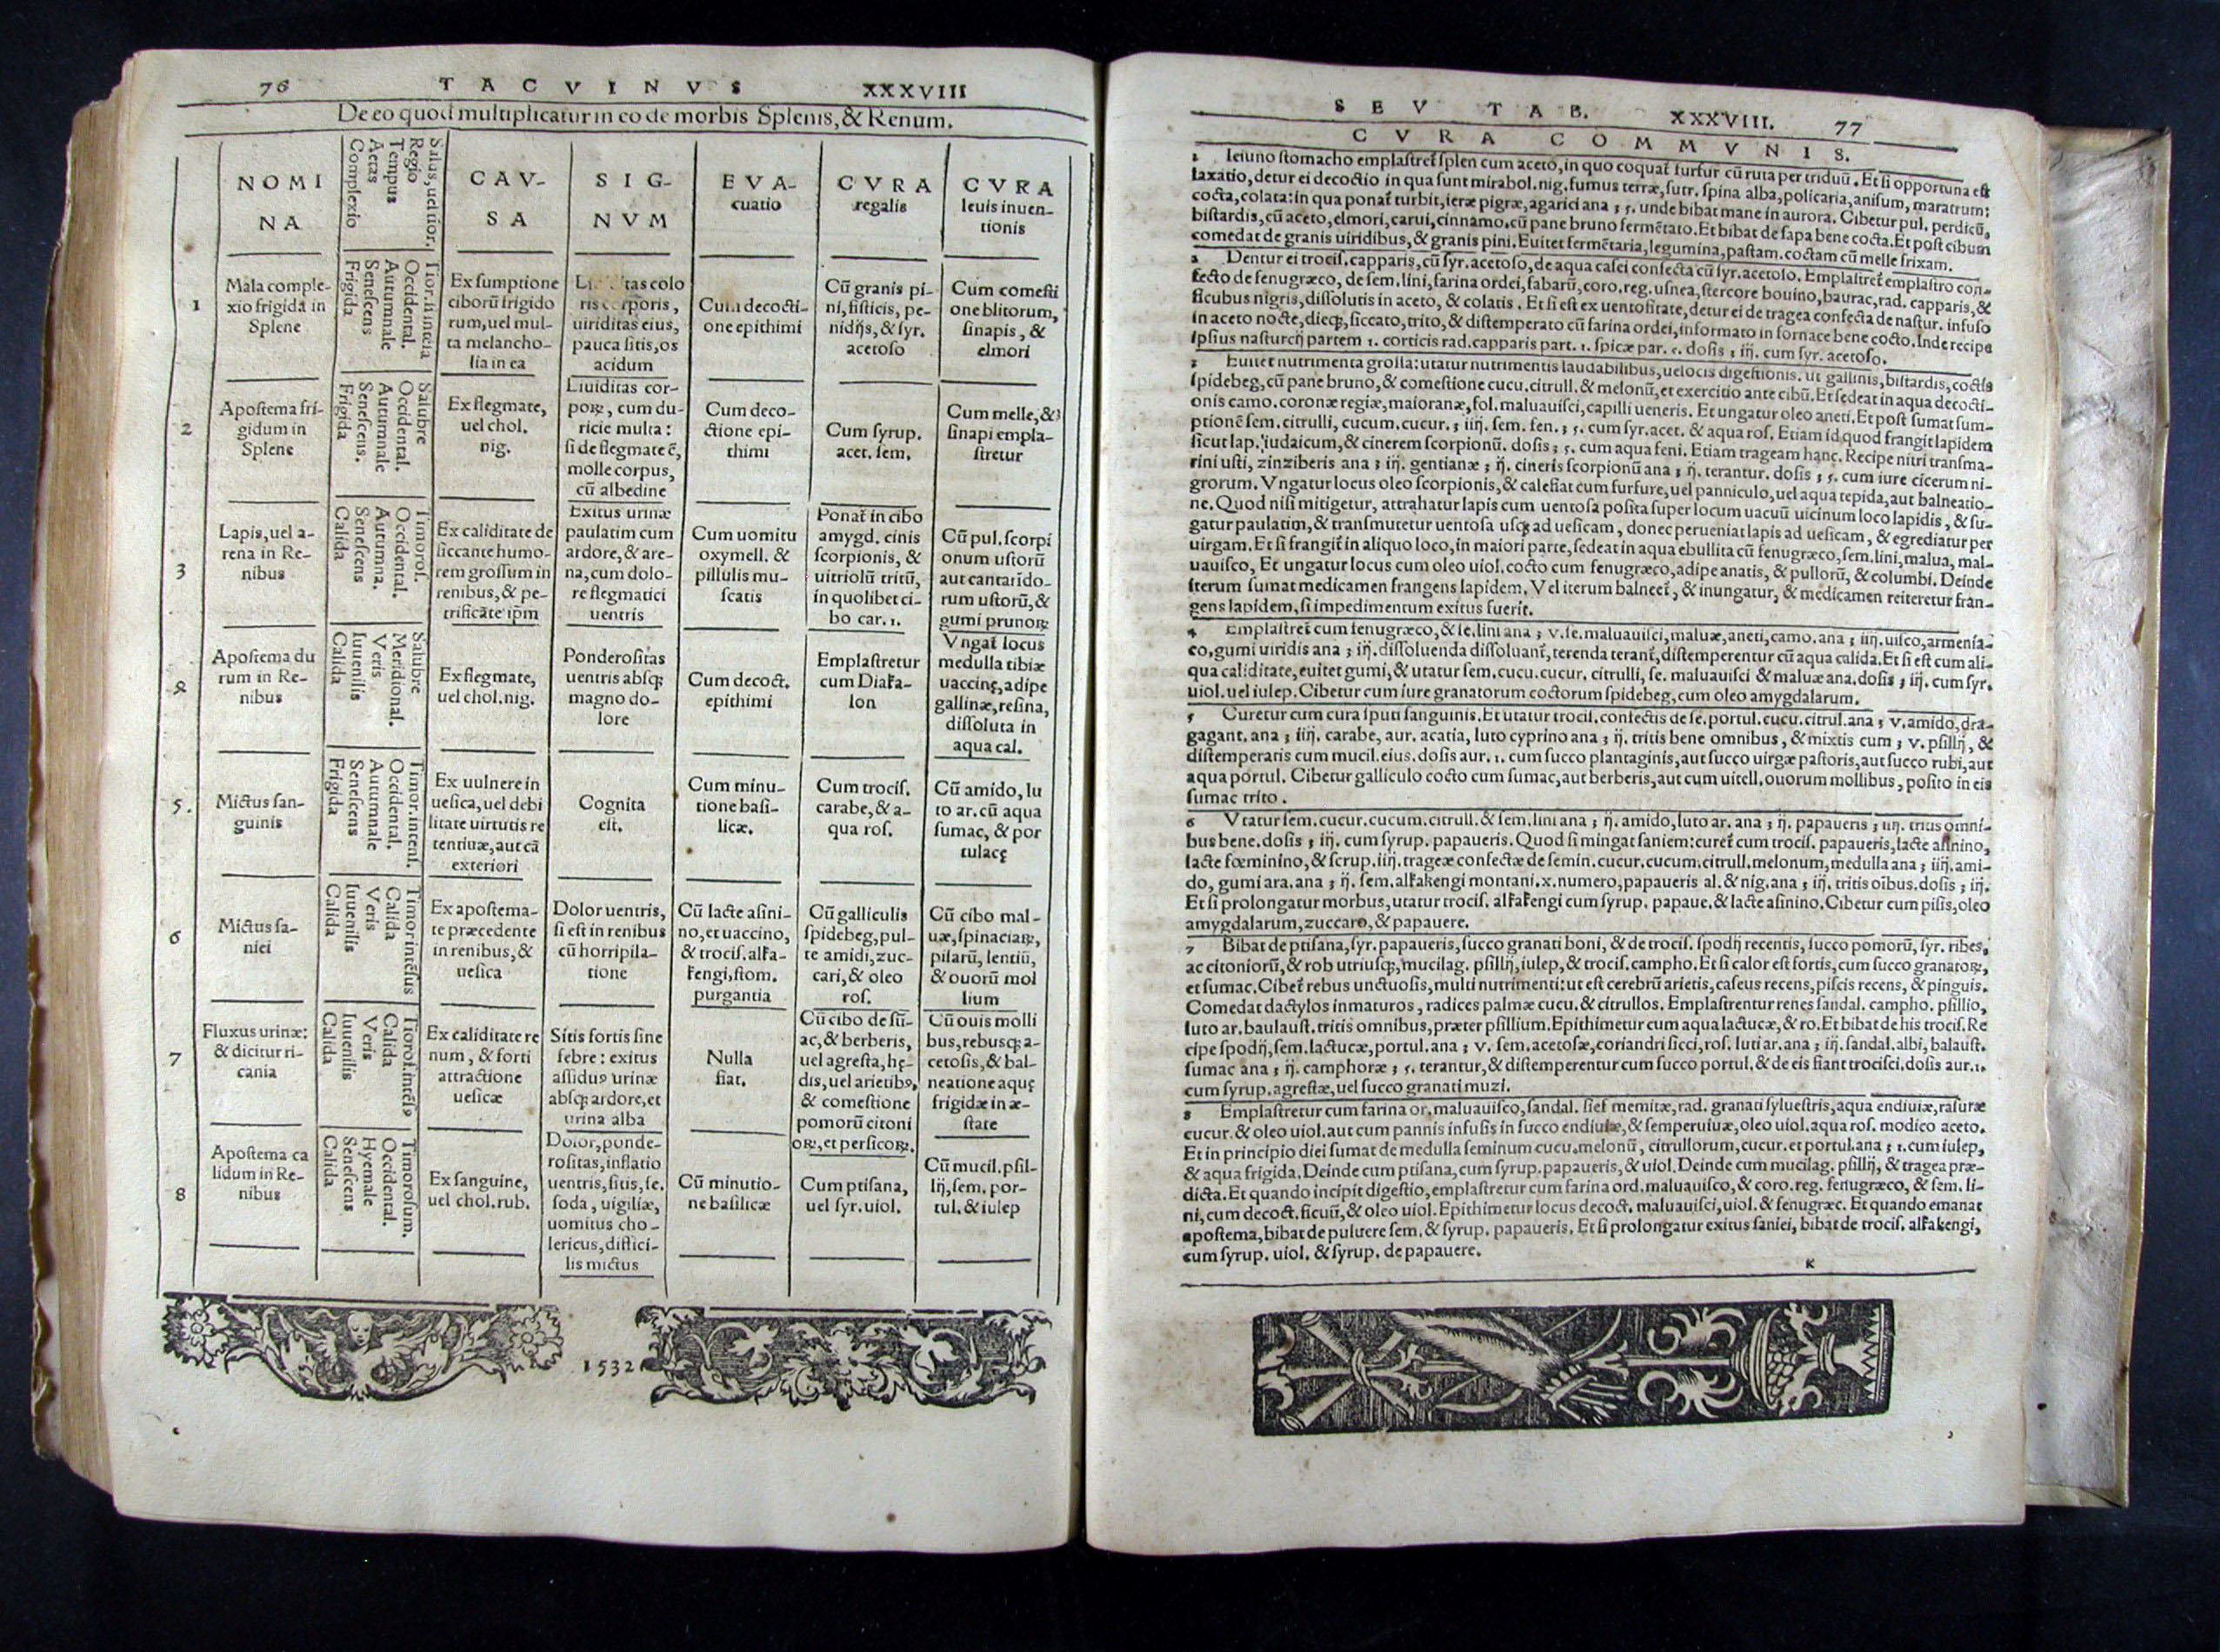 76 TACVINVS XXXVIII
De eo quod multiplicatur in eo de morbis Splenis, & Renum.
NOMI
NA
Salus, uel tior.
Regio
Tempus
Aetas
Complexio
CAV-
SA
SIG-
NVM
EVA-
cuatio
CVRA
regalis
CVRA
leuis inuen-
tionis
1
Mala comple-
xio frigida in
Splene
Occidental.
Autumnale
Senescens
Frigida
Ex sumptione
ciborũ frigido
rum, uel mul-
ta melancho-
lia in ea
tas colo
ris corporis,
uiriditas eius,
pauca sitis, os
acidum
Cum decocti-
one epithimi
Cũ granis pi-
ni, fisticis, pe-
nidijs, & syr.
acetoso
Cum comesti
one blitorum,
sinapis, &
elmori
2
Apostema fri-
gidum in
Splene
Salubre
Occidental.
Autumnale
Senescens.
Frigida
Ex flegmate,
uel chol.
nig.
Liuiditas cor-
poꝝ, cum du-
ricie multa:
si de flegmate ẽ,
molle corpus,
cũ albedine
Cum deco-
ctione epi-
thimi
Cum syrup.
acet. sem.
Cum melle, &
sinapi empla-
stretur
3
Lapis, uel a-
rena in Re-
nibus
Timoros.
Occidental.
Autumna.
Senescens
Calida
Ex caliditate de
siccante humo-
rem grossum in
renibus, & pe-
trificãte ip̃m
Exitus urinæ
paulatim cum
ardore, & are-
na, cum dolo-
re flegmatici
uentris
Cum uomitu
oxymell. &
pillulis mu-
scatis
Ponat̃ in cibo
amygd. cinis
scorpionis, &
uitriolũ tritũ,
in quolibet ci-
bo car. 1.
Cũ pul. scorpi
onum ustorũ
aut cantarido-
rum ustorũ, &
gumi prunoꝝ
4
Apostema du
rum in Re-
nibus
Salubre
Meridional.
Veris
Iuuenilis
Calida
Ex flegmate,
uel chol. nig.
Ponderositas
uentris absqꝫ
magno do-
lore
Cum decoct.
epithimi
Emplastretur
cum Diaka-
lon
Vngat̃ locus
medulla tibiæ
uaccinę, adipe
gallinæ, resina,
dissoluta in
aqua cal.
5.
Mictus san-
guinis
Timor. intens.
Occidental.
Autumnale
Senescens
Frigida
Ex uulnere in
uesica, uel debi
litate uirtutis re
tentiuæ, aut cã
exteriori
Cognita
est.
Cum minu-
tione basi-
licæ.
Cum trocis.
carabe, & a-
qua ros.
Cũ amido, lu
to ar. cũ aqua
sumac, & por
tulacę
6
Mictus sa-
niei
Timor intẽsus
Calida
Veris
Iuuenilis
Calida
Ex apostema-
te præcedente
in renibus, &
uesica
Dolor uentris,
si est in renibus
cũ horripila-
tione
Cũ lacte asini-
no, et uaccino,
& trocis. alka-
kengi, stom.
purgantia
Cũ galliculis
spidebeg, pul-
te amidi, zuc-
cari, & oleo
ros.
Cũ cibo mal-
uæ, spinaciaꝝ,
pisarũ, lentiũ,
& ouorũ mol
lium
7
Fluxus urinæ:
& dicitur ri-
cania
Calida
Veris
Iuuenilis
Calida
Ex caliditate re
num, & forti
attractione
uesicæ
Sitis fortis sine
febre: exitus
assiduꝰ urinæ
absqꝫ ardore, et
urina alba
Nulla
fiat.
Cũ cibo de sũ-
ac, & berberis,
uel agresta, hę-
dis, uel arietibꝰ,
& comestione
pomorũ citoni
oꝝ, et persicoꝝ.
Cũ ouis molli
bus, rebusqꝫ a-
cetosis, & bal-
neatione aquę
frigidæ in æ-
state
8
Apostema ca
lidum in Re-
nibus
Timorosum.
Occidental.
Hyemale
Senescens
Calida
Ex sanguine,
uel chol. rub.
Dolor, ponde-
rositas, inflatio
uentris, sitis, se.
soda, uigiliæ,
uomitus cho-
lericus, diffici-
lis mictus
Cũ minutio-
ne basilicæ
Cum ptisana,
uel syr. uiol.
Cũ mucil. psil-
lij, sem. por-
tul. & iulep
1532
SEV TAB. XXXVIII. 77
CVRA COMMVNIS.
1 Ieiuno stomacho emplastret̃ splen cum aceto, in quo coquat̃ furfur cũ ruta per triduũ. Et si opportuna est
laxatio, detur ei decoctio in qua sunt mirabol. nig. fumus terræ, sutr. spina alba, policaria, anisum, maratrum:
cocta, colata: in qua ponat̃ turbit, ieræ pigræ, agarici ana ʒ ς. unde bibat mane in aurora. Cibetur pul. perdicũ,
bistardis, cũ aceto, elmori, carui, cinnamo. cũ pane bruno fermẽtato. Et bibat de sapa bene cocta. Et post cibum
comedat de granis uiridibus, & granis pini. Euitet fermẽtaria, legumina, pastam. coctam cũ melle frixam.
2 Dentur ei trocis. capparis, cũ syr. acetoso, de aqua casei confecta cũ syr. acetoso. Emplastret̃ emplastro con-
fecto de fenugræco, de sem. lini, farina ordei, fabarũ, coro. reg. usnea, stercore bouino, baurac, rad. capparis, &
ficubus nigris, dissolutis in aceto, & colatis. Et si est ex uentositate, detur ei de tragea confecta de nastur. infuso
in aceto nocte, dieqꝫ, siccato, trito, & distemperato cũ farina ordei, informato in fornace bene cocto. Inde recipe
ipsius nasturcij partem 1. corticis rad. capparis part. 1. spicæ par. ς. dosis ʒ iij. cum syr. acetoso.
3 Euitet nutrimenta grossa: utatur nutrimentis laudabilibus, uelocis digestionis. ut gallinis, bistardis, coctis
spidebeg, cũ pane bruno, & comestione cucu. citrull. & melonũ, et exercitio ante cibũ. Et sedeat in aqua decocti-
onis camo. coronæ regiæ, maioranæ, fol. maluauisci, capilli ueneris. Et ungatur oleo aneti. Et post sumat sum-
ptionẽ sem. citrulli, cucum. cucur. ʒ iiij. sem. fen. ʒ ς. cum syr. acet. & aqua ros. Etiam id quod frangit lapidem
sicut lap. iudaicum, & cinerem scorpionũ. dosis ʒ ς. cum aqua feni. Etiam trageam hanc. Recipe nitri transma-
rini usti, zinziberis ana ʒ iij. gentianæ ʒ ij. cineris scorpionũ ana ʒ ij. terantur. dosis ʒ ς. cum iure cicerum ni-
grorum. Vngatur locus oleo scorpionis, & calefiat cum furfure, uel panniculo, uel aqua tepida, aut balneatio-
ne. Quod nisi mitigetur, attrahatur lapis cum uentosa posita super locum uacuũ uicinum loco lapidis, & su-
gatur paulatim, & transmutetur uentosa usqꝫ ad uesicam, donec perueniat lapis ad uesicam, & egrediatur per
uirgam. Et si frangit̃ in aliquo loco, in maiori parte, sedeat in aqua ebullita cũ fenugræco, sem. lini, malua, mal-
uauisco, Et ungatur locus cum oleo uiol. cocto cum fenugræco, adipe anatis, & pullorũ, & columbi. Deinde
iterum sumat medicamen frangens lapidem. Vel iterum balneet̃, & inungatur, & medicamen reiteretur fran-
gens lapidem, si impedimentum exitus fuerit.
4 Emplastret̃ cum fenugræco, & se. lini ana ʒ v. se. maluauisci, maluæ, aneti, camo. ana ʒ iiij. uisco, armenia-
co, gumi uiridis ana ʒ iij. dissoluenda dissoluant̃, terenda terant̃, distemperentur cũ aqua calida. Et si est cum ali-
qua caliditate, euitet gumi, & utatur sem. cucu. cucur. citrulli, se. maluauisci & maluæ ana. dosis ʒ iij. cum syr.
uiol. uel iulep. Cibetur cum iure granatorum coctorum spidebeg, cum oleo amygdalarum.
5 Curetur cum cura sputi sanguinis. Et utatur trocis. confectis de se. portul. cucu. citrul. ana ʒ v. amido, dra-
gagant. ana ʒ iiij. carabe, aur. acatia, luto cyprino ana ʒ ij. tritis bene omnibus, & mixtis cum ʒ v. psillij, &
distemperatis cum mucil. eius. dosis aur. 1. cum succo plantaginis, aut succo uirgæ pastoris, aut succo rubi, aut
aqua portul. Cibetur galliculo cocto cum sumac, aut berberis, aut cum uitell. ouorum mollibus, posito in eis
sumac trito.
6 Vtatur sem. cucur. cucum. citrull. & sem. lini ana ʒ ij. amido, luto ar. ana ʒ ij. papaueris ʒ iiij. tritis omni-
bus bene. dosis ʒ iij. cum syrup. papaueris. Quod si mingat saniem: curet̃ cum trocis. papaueris, lacte asinino,
lacte fœminino, & scrup. iiij. trageæ confectæ de semin. cucur. cucum. citrull. melonum, medulla ana ʒ iiij. ami-
do, gumi ara. ana ʒ ij. sem. alkakengi montani. x. numero, papaueris al. & nig. ana ʒ iij. tritis oĩbus. dosis ʒ iij.
Et si prolongatur morbus, utatur trocis. alkakengi cum syrup. papaue. & lacte asinino. Cibetur cum pisis, oleo
amygdalarum, zuccaro, & papauere.
7 Bibat de ptisana, syr. papaueris, succo granati boni, & de trocis. spodij recentis, succo pomorũ, syr. ribes,
ac citoniorũ, & rob utriusqꝫ, mucilag. psillij, iulep, & trocis. campho. Et si calor est fortis, cum succo granatoꝝ,
et sumac. Cibet̃ rebus unctuosis, multi nutrimenti: ut est cerebrũ arietis, caseus recens, piscis recens, & pinguis.
Comedat dactylos inmaturos, radices palmæ cucu. & citrullos. Emplastrentur renes sandal. campho. psillio,
luto ar. baulaust. tritis omnibus, præter psillium. Epithimetur cum aqua lactucæ, & ro. Et bibat de his trocis. Re
cipe spodij, sem. lactucæ, portul. ana ʒ v. sem. acetosæ, coriandri sicci, ros. luti ar. ana ʒ iij. sandal. albi, balaust.
sumac ana ʒ ij. camphoræ ʒ ς. terantur, & distemperentur cum succo portul. & de eis fiant trocisci. dosis aur. 1.
cum syrup. agrestæ, uel succo granati muzi.
8 Emplastretur cum farina or. maluauisco, sandal. sief memitæ, rad. granati syluestris, aqua endiuiæ, rasuræ
cucur. & oleo uiol. aut cum pannis infusis in succo endiuiæ, & semperuiuæ, oleo uiol. aqua ros. modico aceto.
Et in principio diei sumat de medulla seminum cucu. melonũ, citrullorum, cucur. et portul. ana ʒ 1. cum iulep,
& aqua frigida. Deinde cum ptisana, cum syrup. papaueris, & uiol. Deinde cum mucilag. psillij, & tragea præ-
dicta. Et quando incipit digestio, emplastretur cum farina ord. maluauisco, & coro. reg. fenugræco, & sem. li-
ni, cum decoct. ficuũ, & oleo uiol. Epithimetur locus decoct. maluauisci, uiol. & fenugræc. Et quando emanat
apostema, bibat de puluere sem. & syrup. papaueris. Et si prolongatur exitus saniei, bibat de trocis. alkakengi,
cum syrup. uiol. & syrup. de papauere.
K